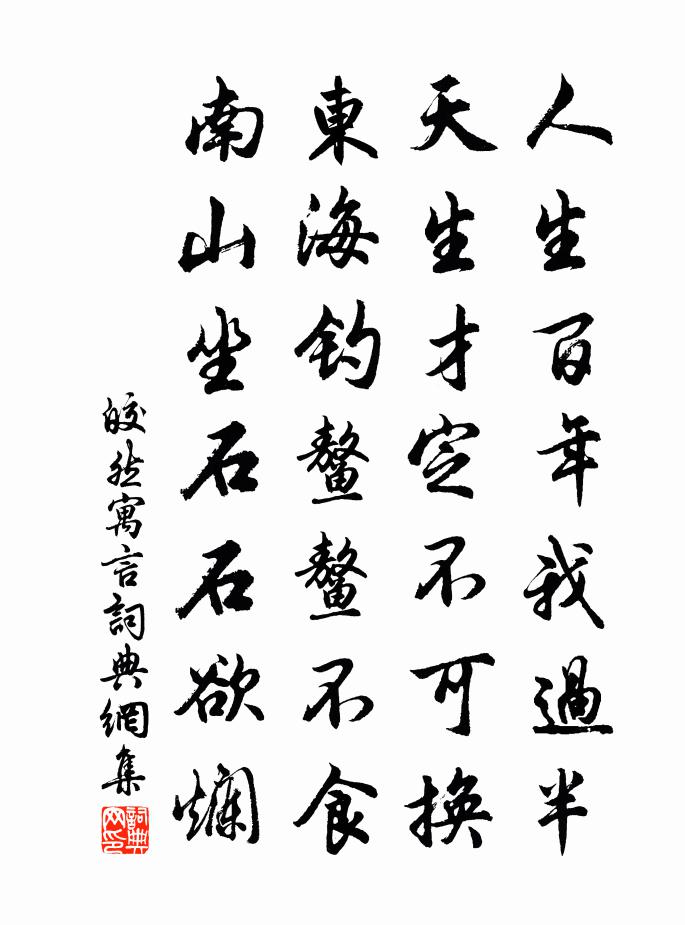 人生百年我過半
天生才定不可換
東海釣鼇鼇不食
南山坐石石欲爛
皎然寓言詞典網集
詞典網印